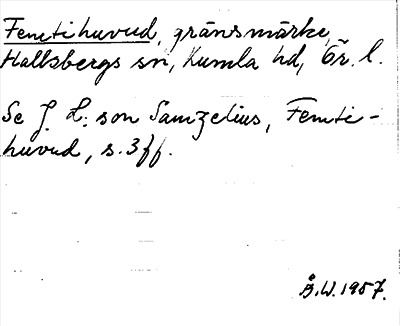 Femtihuvud, gränsmärke,
Hallsbergs sn, Kumla hd, Ör. l.
Se J. L:son Samzelius, Femti-
huvud, s. 3 ff.
Å.W. 1957.